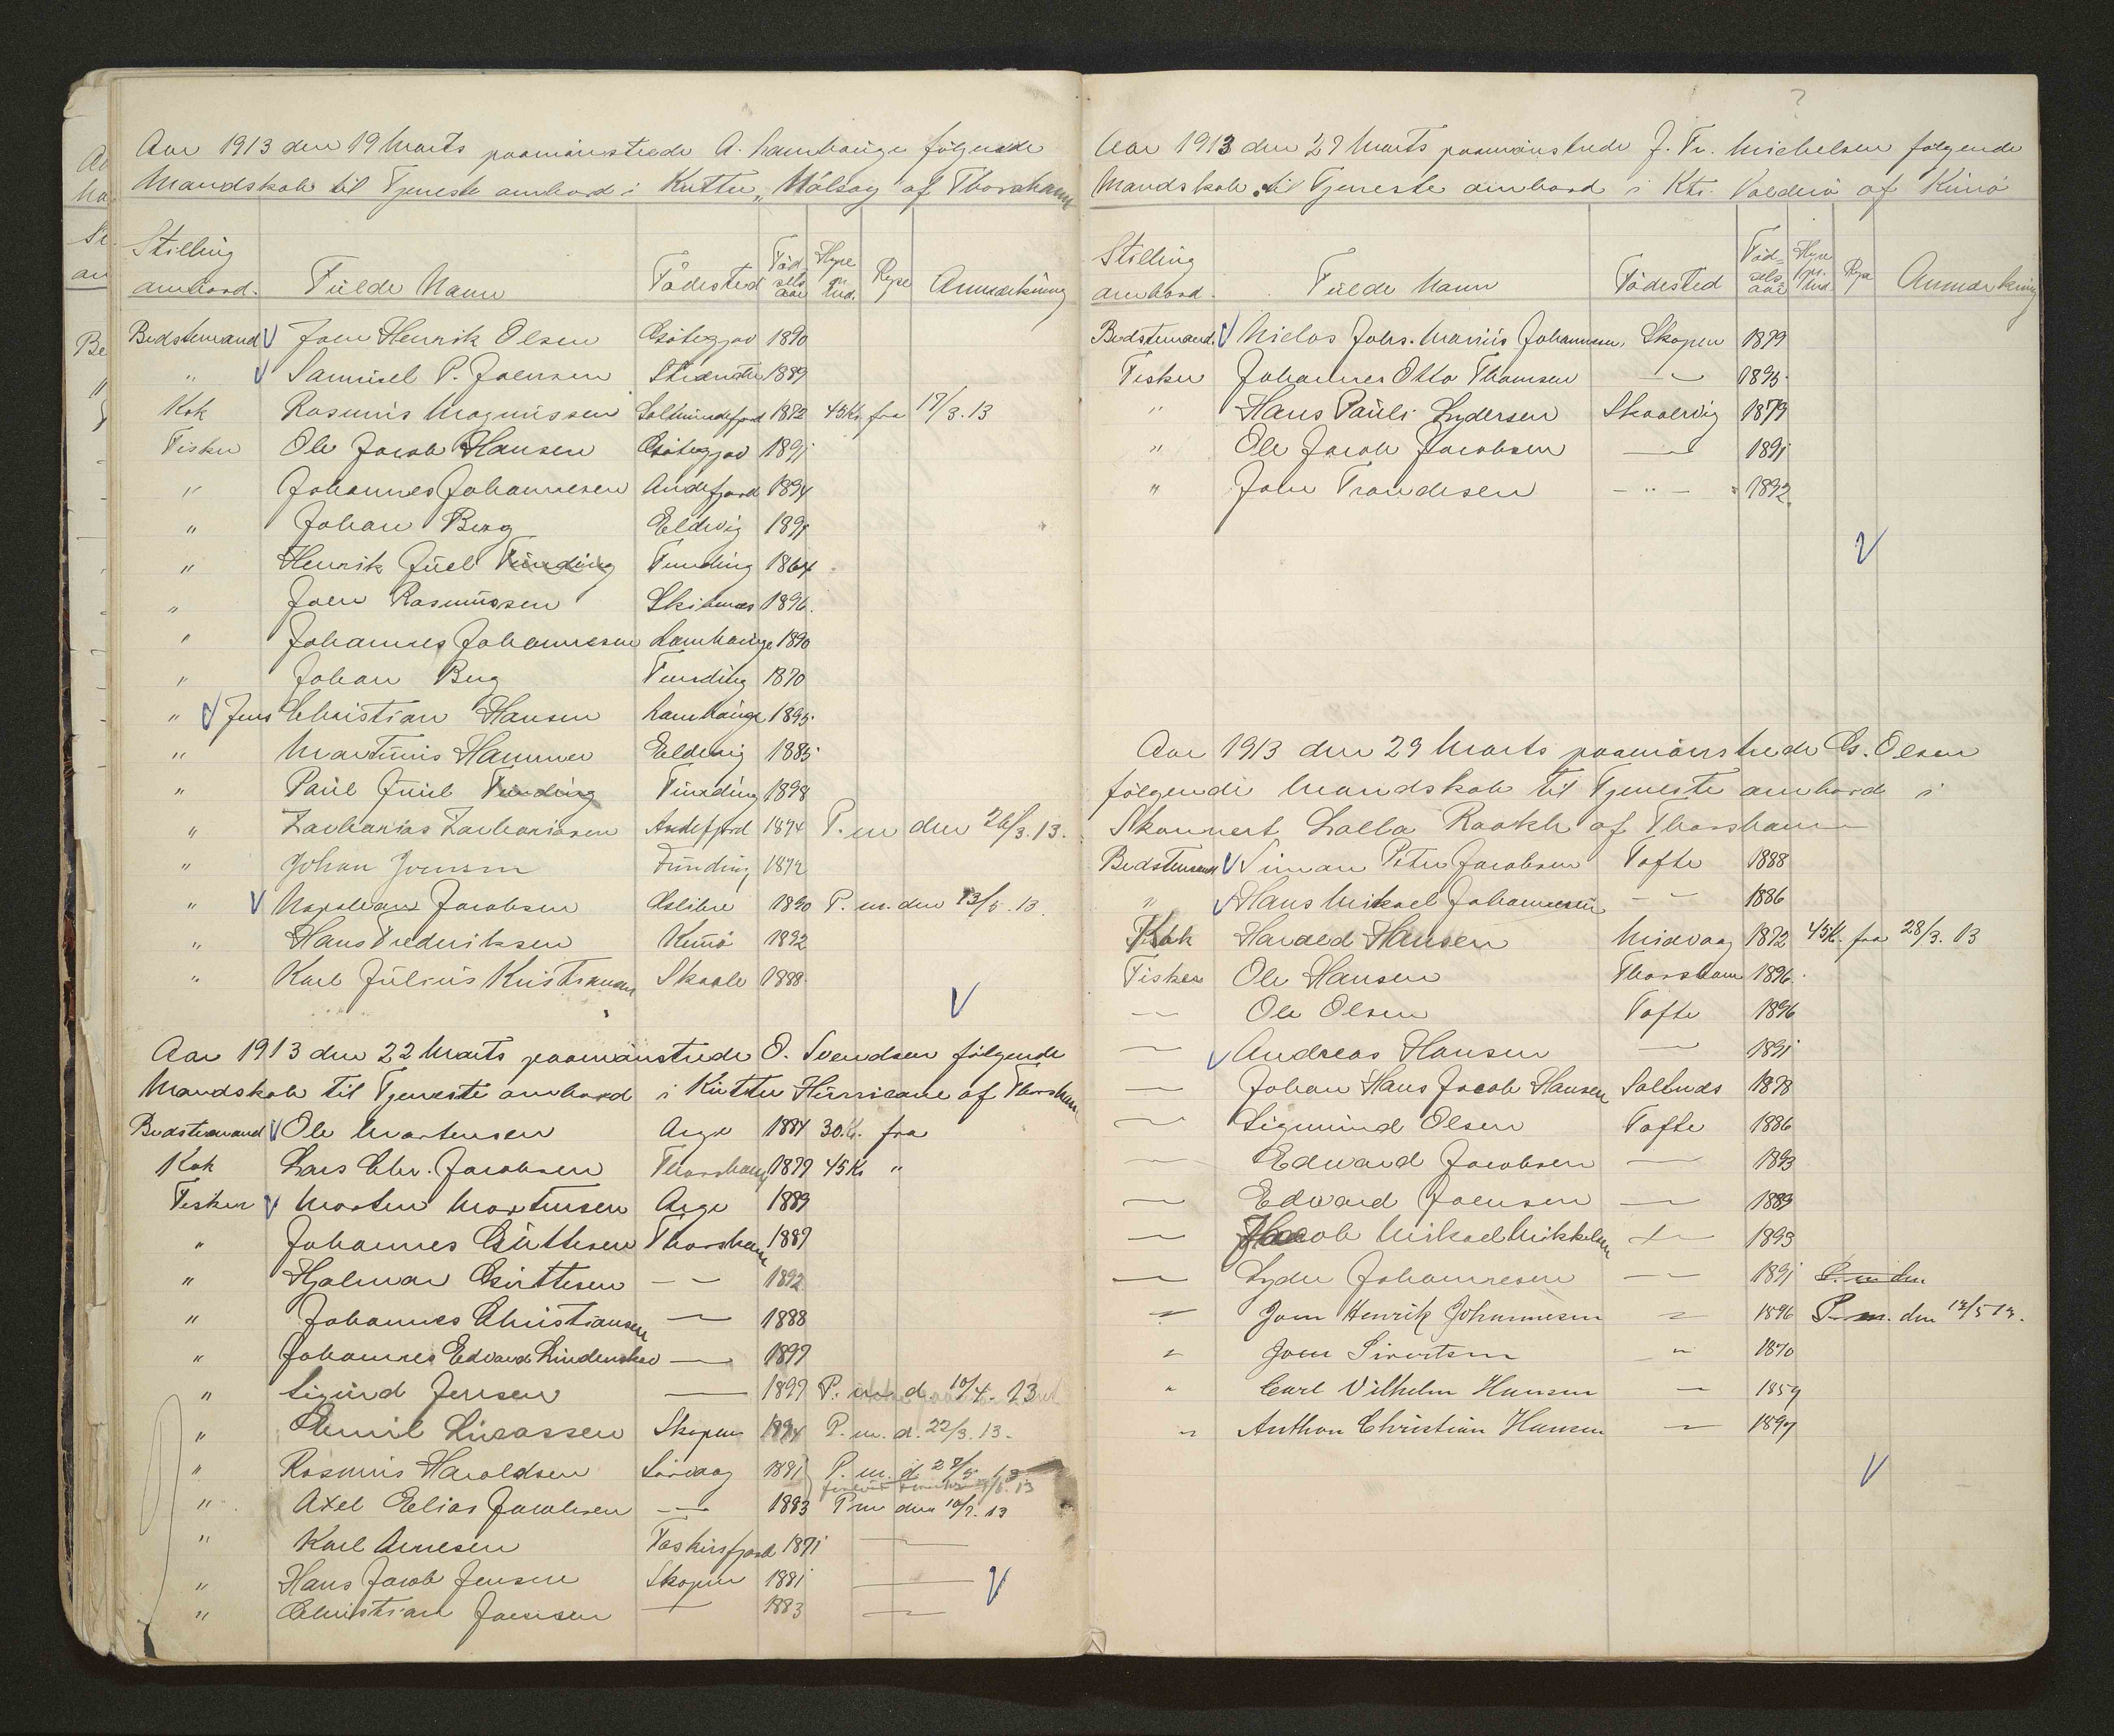 Aar 1913 den 19 Marts paamönstrede A. Lamhauge følgende
Mandskab til Tjeneste ombord i Kutter „Nólsoy af Thorshavn
Stilling ombord. Fulde Navn Fødested Fødselsaar Hyre pr. Md. Rejse Anmærkning
Bedstemand Joen Henrik Olsen Gøtegjov 1890
" Samuel P. Joensen Strendre 1889
Kok Rasmus Magnussen Solmundefjord 1872 45 Kr. fra 17/3.13
Fisker Ole Jacob Hansen Gøtegjov 1891
" Johannes Johannesen Andefjord 1894
" Johan Berg Eldevig 1891
" Henrik Juel Funding Funding 1864
" Joen Rasmussen Skibenæs 1896.
" Johannes Johannesen Lamhauge 1890
" Johan Berg Funding 1870
" Jens Christian Hansen Lamhauge 1895.
" Martinus Hammer Eldevig 1885
" Paul Juul Funding Funding 1898
" Zacharias Zachariasen Andefjord 1894 P. m den 26/3.13.
" Johan Joensen Funding 1872
" Napolean Jacobsen Glibre 1890 P. m. den 13/5.13.
" Hans Frederiksen Kunø 1892
" Karl Julius Kristiansen Skaale 1888.
Aar 1913 den 22 Marts paamönstrede O. Svendsen følgende
Mandskab til Tjeneste ombord i Kutter Hurricane af Thorshavn
Bedstemand Ole Mortensen Arge 1884 30 K. fra
Kok Lars Chr. Jacobsen Thorshavn 1879 45 Kr "
Fisker Morten Mortensen Arge 1889
" Johannes Guttesen Thorshavn 1889
" Hjalmar Guttesen — — 1892
" Johannes Christiansen — 1888
" Johannes Edvard Lindenskov — 1897
" Sigurd Jensen — 1897 P. m d. 10/4. 13
" Emil Lucassen Skopen 1894 P. m. d. 22/3. 13.
" Rasmus Haraldsen Sørvaag 1891 P. m. d 28/5 13
" Axel Elias Jacobsen — 1883 P m den 10/7. 13
" Karl Arnesen Faskusfjord 1871 —
" Hans Jacob Jensen Skopen 1881 —
" Christian Joensen — 1883 —
Aar 1913 den 29 Marts paamönstrede J. Fr. Michelsen følgende
Mandskab til Tjeneste ombord i Ktr. Valderø af Kunø
Stilling ombord. Fulde Navn Fødested Fødselsaar Hyre pr. Md Rejse Anmærkning
Bedstemand. Niclas Johs. Marius Johannesen. Skopen 1879
Fisker Johannes Otto Thomsen — 1895.
" Hans Pauli Lydersen Skaalevig 1879
" Ole Jacob Jacobsen — 1891
" John Trondesen — " — 1892
Aar 1913 den 29 Marts paamönstrede G. Olsen
følgende Mandskab til Tjeneste ombord i
Skonnert Lalla Rookh af Thorshavn
Bedstemand Simon Peter Jacobsen Tofte 1888
" Hans Mikael Johannesen — 1886
Kok Harald Hansen Midvaag 1872 45 K. fra 28/3. 13
Fisker Ole Hansen Thorshavn 1896.
— Ole Olsen Tofte 1896
— Andreas Hansen — 1891
— Johan Hans Jacob Hansen Saltnæs 1878
— Sigmund Olsen Tofte 1886
— Edward Jacobsen — 1893
— Edward Joensen — 1889
— Jacob Mikael Mikkelsen — 1893
— Lyder Johannesen — 1891 P. m den
" Joen Henrik Johannesen " 1896 P. m. den 12/5 13.
" Joen Sivertsen " 1870
" Carl Vilhelm Hansen — 1859
" Anthon Christian Hansen — 1897